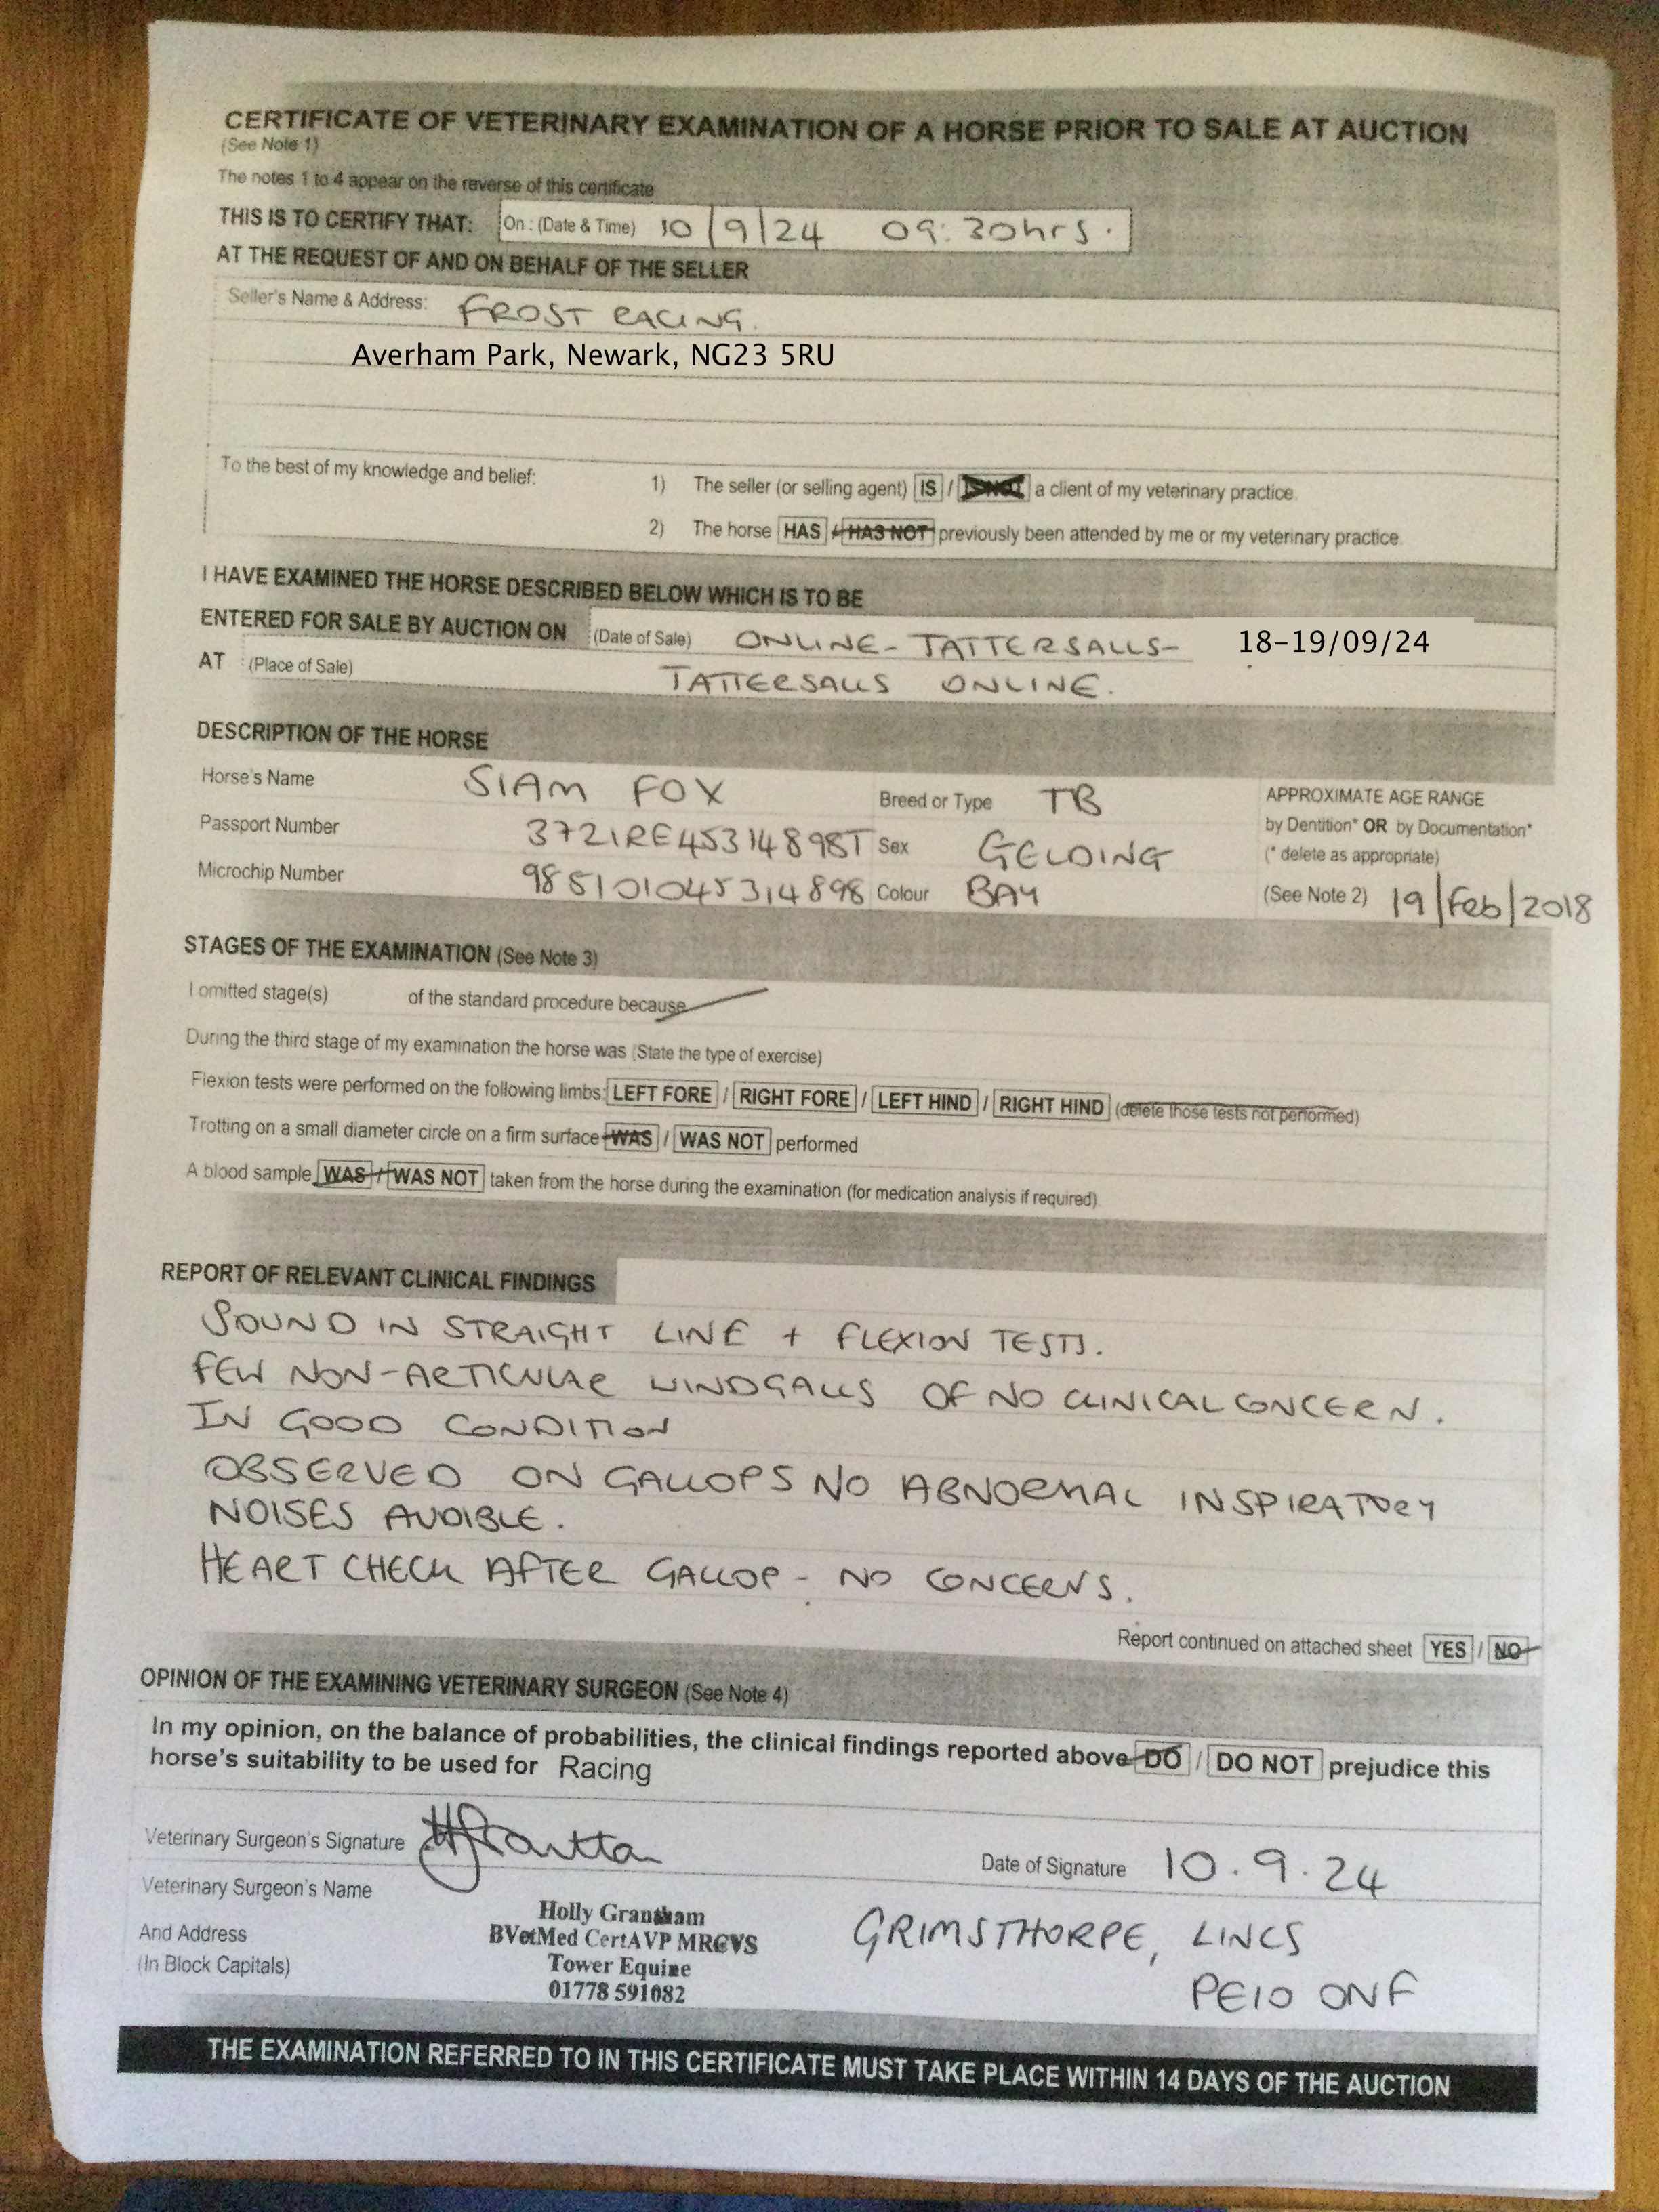 CERTIFICATE OF VETERINARY EXAMINATION OF A HORSE PRIOR TO SALE AT AUCTION
(See Note 1)
The notes 1 to 4 appear on the reverse of this certificate
THIS IS TO CERTIFY THAT: On : (Date & Time) 10/9/24 09:30hrs.
AT THE REQUEST OF AND ON BEHALF OF THE SELLER
Seller's Name & Address: FROST RACING.
Averham Park, Newark, NG23 5RU
To the best of my knowledge and belief: 1) The seller (or selling agent) IS / IS NOT a client of my veterinary practice.
2) The horse HAS / HAS NOT previously been attended by me or my veterinary practice.
I HAVE EXAMINED THE HORSE DESCRIBED BELOW WHICH IS TO BE
ENTERED FOR SALE BY AUCTION ON (Date of Sale) ONLINE - TATTERSALLS - 18-19/09/24
AT : (Place of Sale) TATTERSALLS ONLINE.
DESCRIPTION OF THE HORSE
Horse's Name SIAM FOX Breed or Type TB APPROXIMATE AGE RANGE
Passport Number 372IRE45314898T Sex GELDING by Dentition* OR by Documentation*
(* delete as appropriate)
Microchip Number 985101045314898 Colour BAY (See Note 2) 19/Feb/2018
STAGES OF THE EXAMINATION (See Note 3)
I omitted stage(s) of the standard procedure because
During the third stage of my examination the horse was (State the type of exercise)
Flexion tests were performed on the following limbs: LEFT FORE / RIGHT FORE / LEFT HIND / RIGHT HIND (delete those tests not performed)
Trotting on a small diameter circle on a firm surface WAS / WAS NOT performed
A blood sample WAS / WAS NOT taken from the horse during the examination (for medication analysis if required)
REPORT OF RELEVANT CLINICAL FINDINGS
SOUND IN STRAIGHT LINE + FLEXION TESTS.
FEW NON-ARTICULAR WINDGALLS OF NO CLINICAL CONCERN.
IN GOOD CONDITION
OBSERVED ON GALLOPS NO ABNORMAL INSPIRATORY
NOISES AUDIBLE.
HEART CHECK AFTER GALLOP - NO CONCERNS.
Report continued on attached sheet YES / NO
OPINION OF THE EXAMINING VETERINARY SURGEON (See Note 4)
In my opinion, on the balance of probabilities, the clinical findings reported above DO / DO NOT prejudice this
horse's suitability to be used for Racing
Veterinary Surgeon's Signature HGrantham Date of Signature 10.9.24
Veterinary Surgeon's Name
And Address
(In Block Capitals)
Holly Grantham
BVetMed CertAVP MRCVS
Tower Equine
01778 591082
GRIMSTHORPE, LINCS
PE10 0NF
THE EXAMINATION REFERRED TO IN THIS CERTIFICATE MUST TAKE PLACE WITHIN 14 DAYS OF THE AUCTION